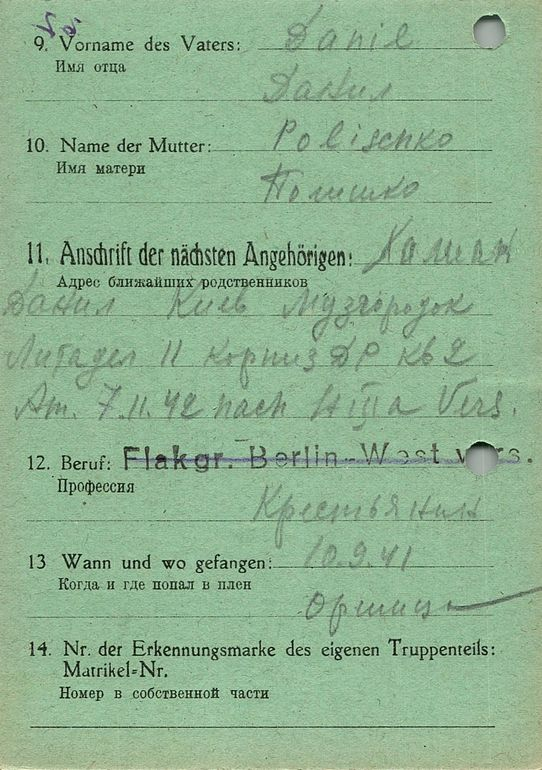 9. Vorname des Vaters: Danil
Имя отца
Данил
10. Name der Mutter: Polischko
Имя матери
Полишко
11. Anschrift der nächsten Angehörigen:
Адрес ближайших родственников
Данил Киев Музгородок
11 корпиз ДР кв 2
Am. 7.11.42 nach Vers.
12. Beruf: Flakgr. Berlin-West vers.
Профессия
Крестьянин
13 Wann und wo gefangen: 10.9.41
Когда и где попал в плен
Оржица
14. Nr. der Erkennungsmarke des eigenen Truppenteils:
Matrikel-Nr.
Номер в собственной части